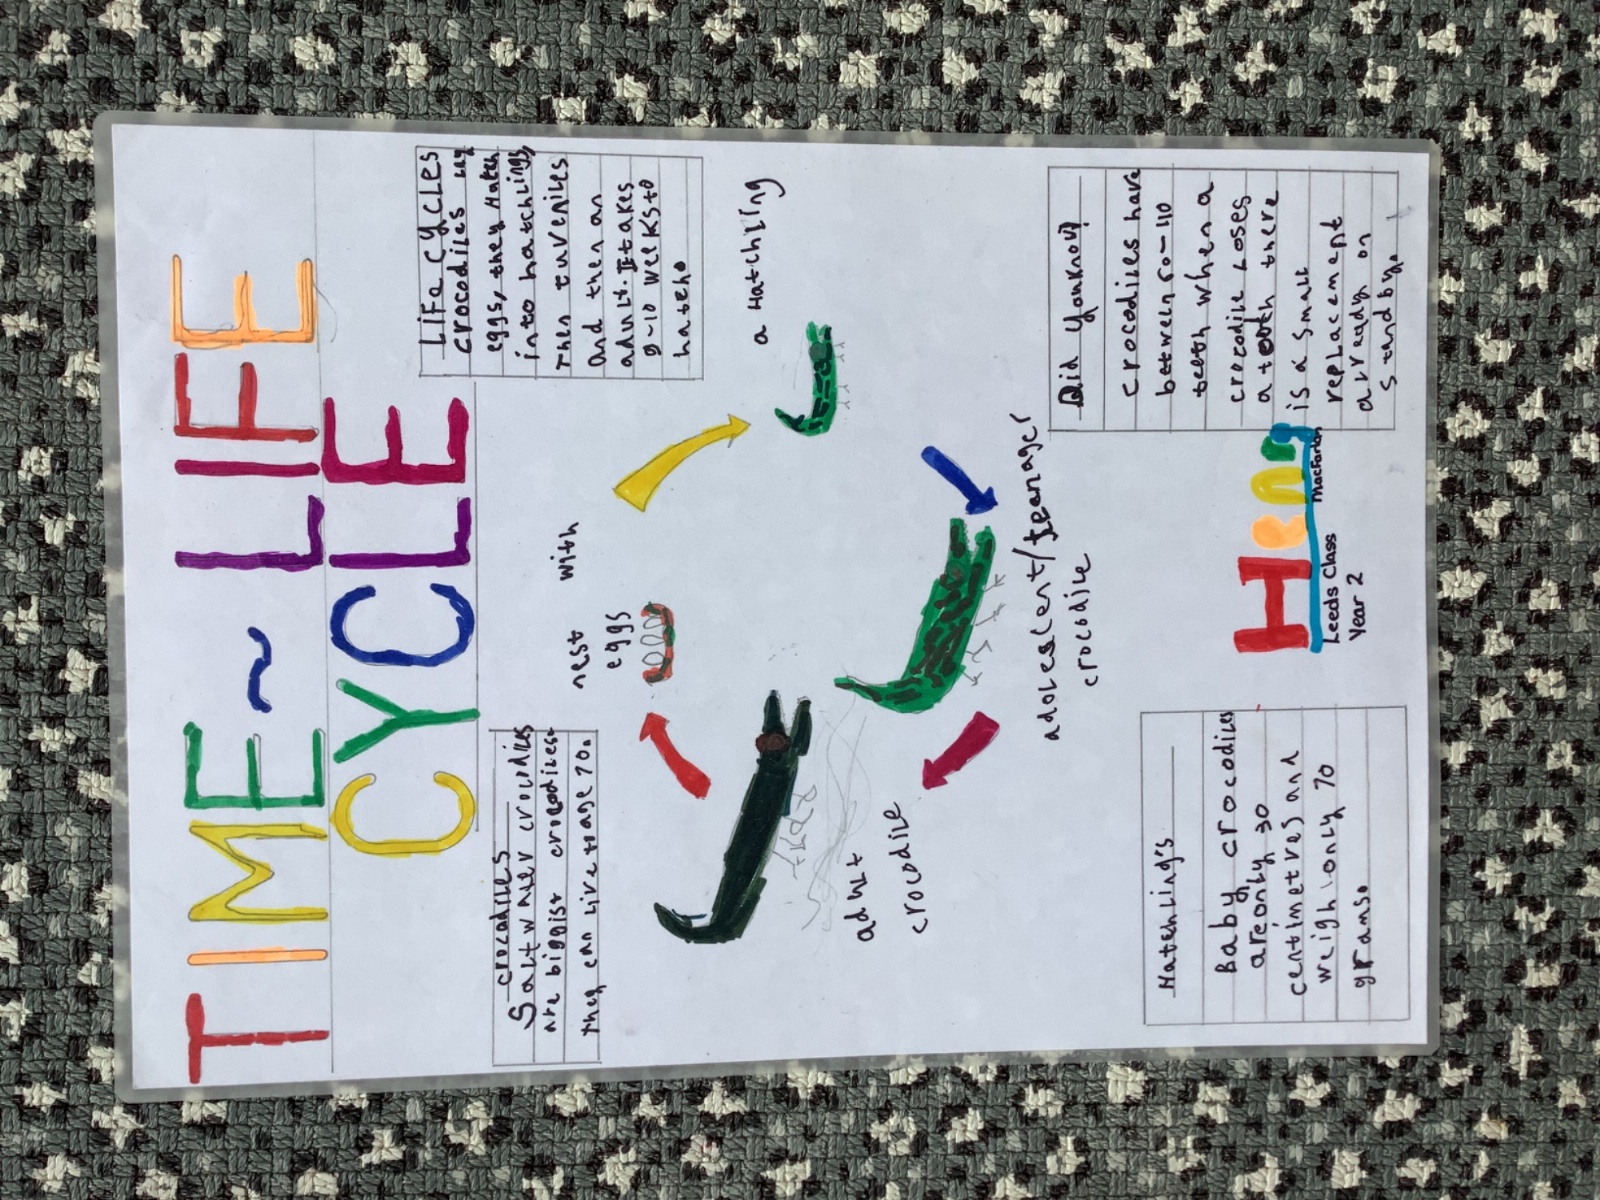 TIME ~ LIFE
CYCLE
crocodiles
Saltwater crocodiles
are biggist crocodiles.
they can live to age 70.
LIFe cycLes
crocodiles Lay
eggs, they Hatch
into hatchlings,
Then tuveniles
And then an
adult. It takes
9-10 weeks to
hatch.
nest with
eggs
a Hatchling
adolescent/teenager
crocodile
adult
crocodile
Hatchling's
Baby crocodiles
are only 30
centimetres and
weigh only 70
grams.
Did you know?
crocodiles have
between 60-110
teeth when a
crocodile Loses
a tooth there
is a small
replacement
already on
standby.
Heny
Leeds Class
Year 2